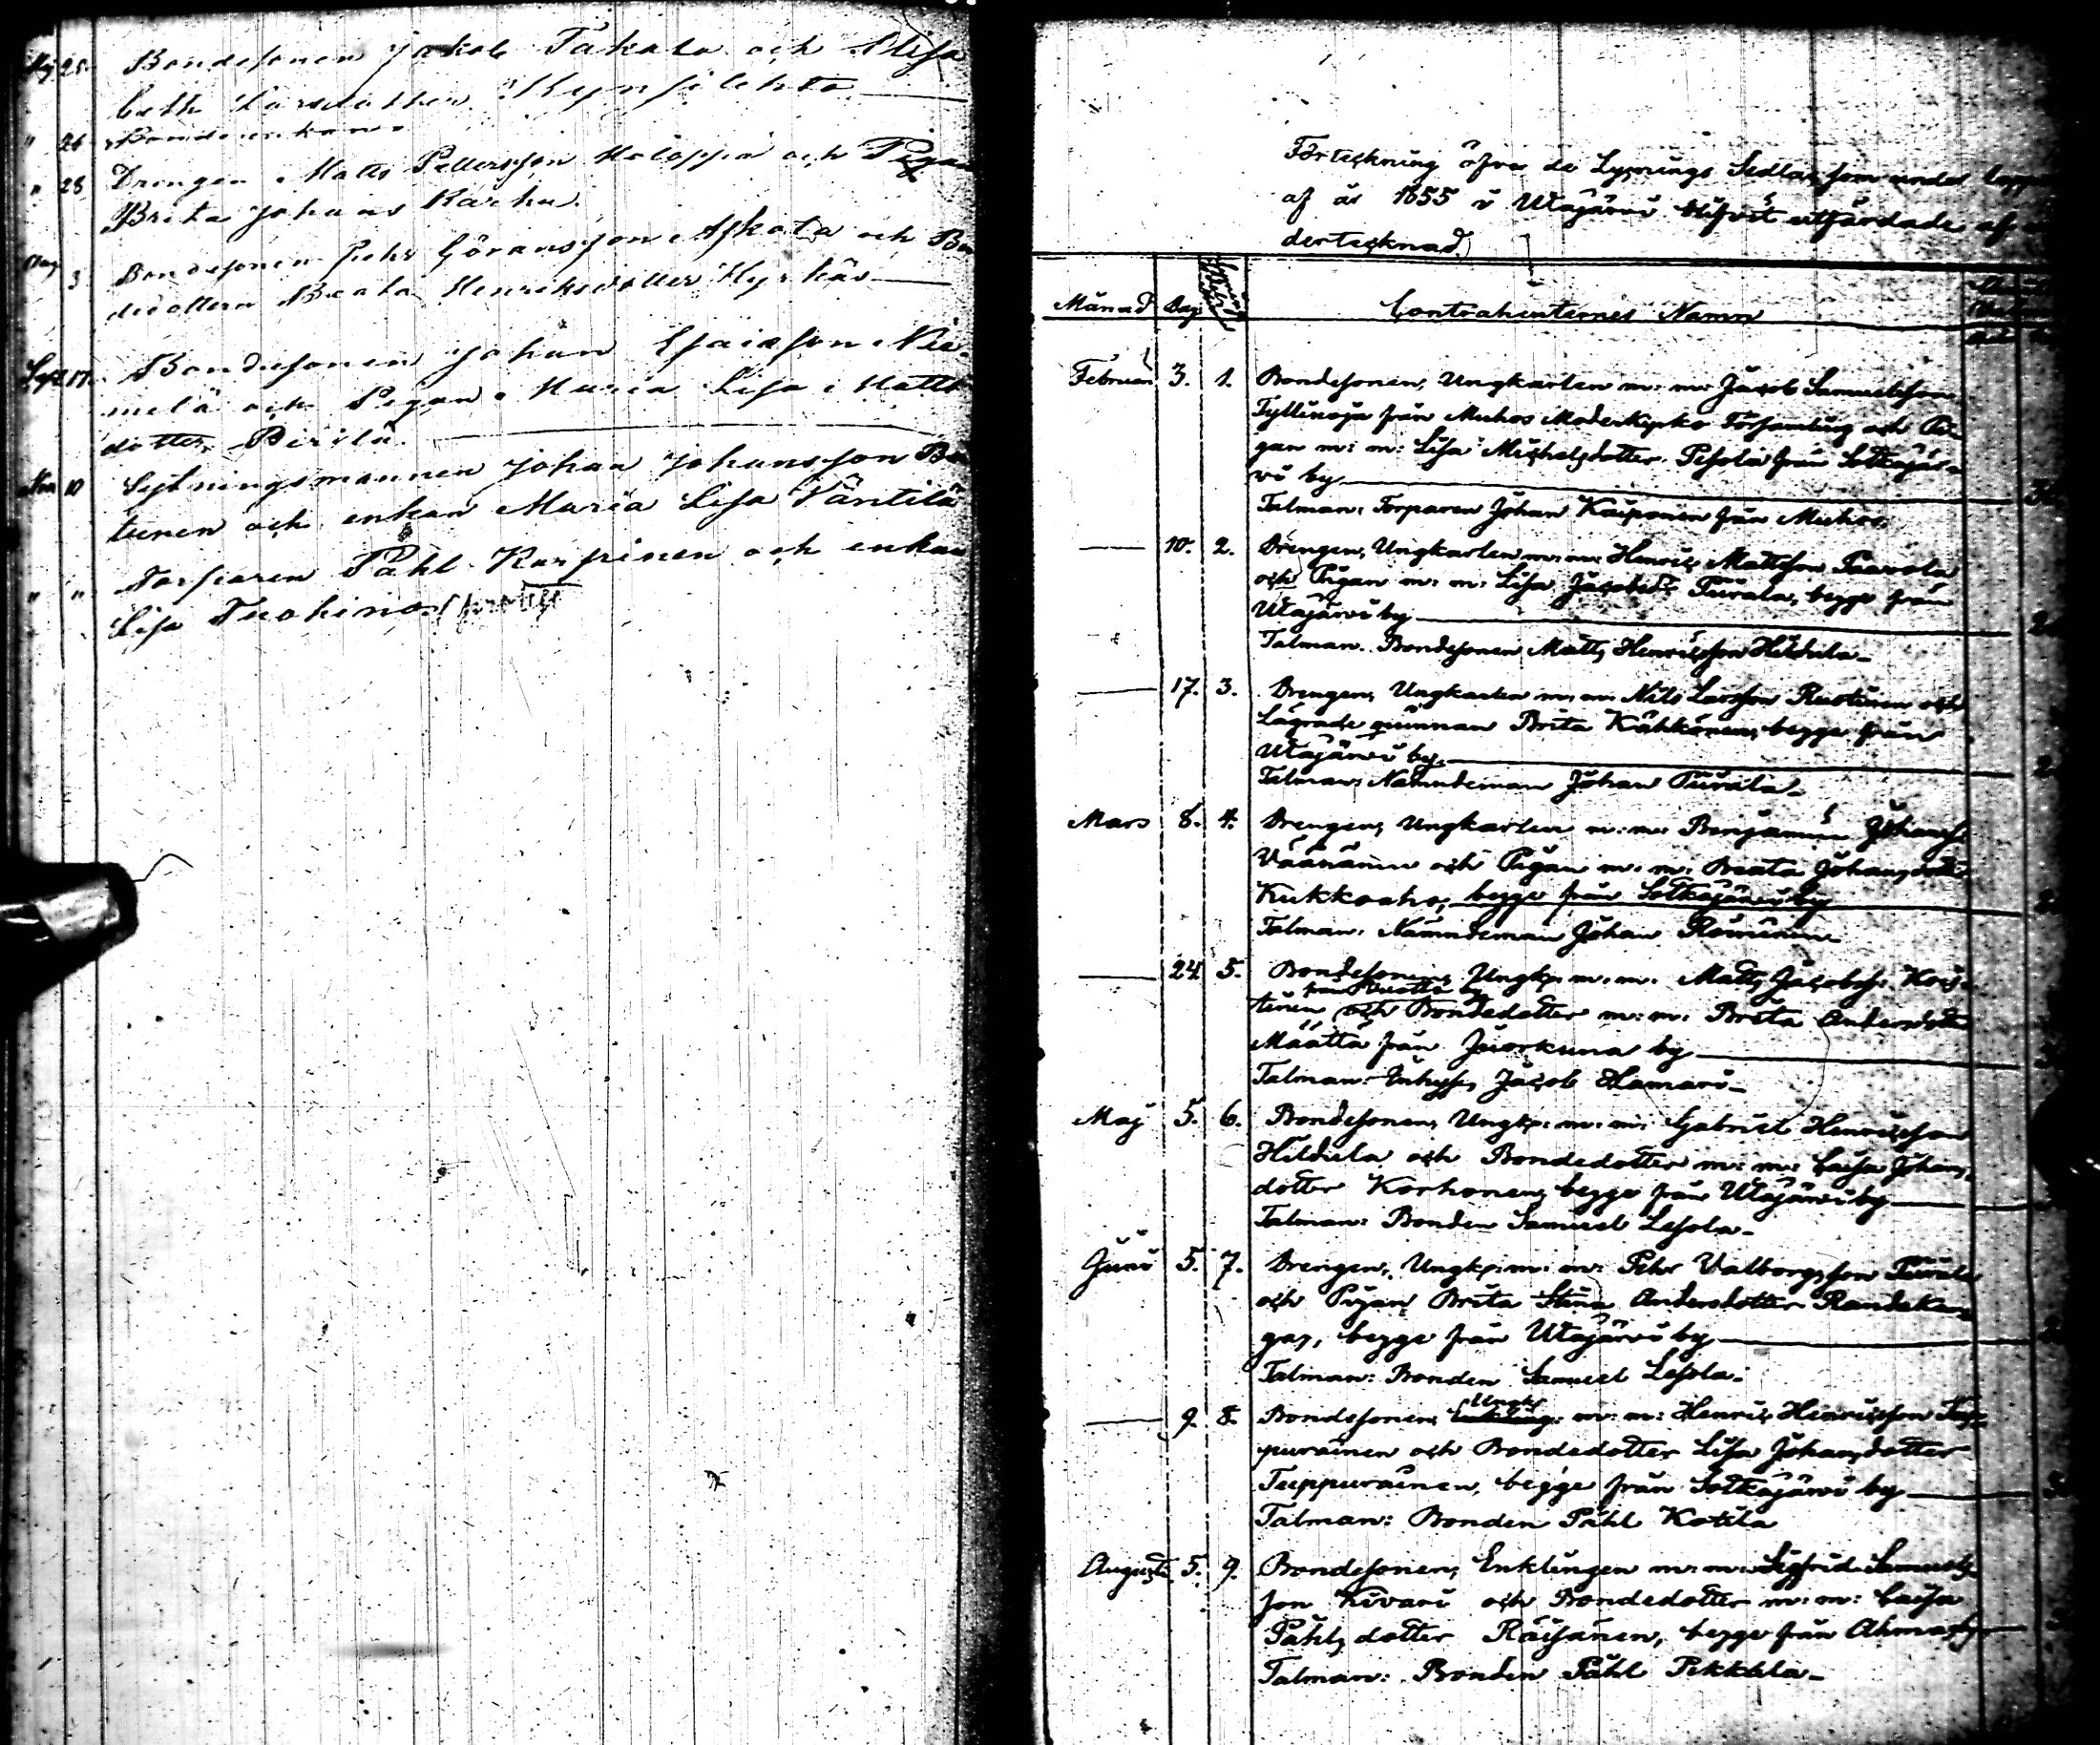 25. Bondesonen Jakob Takala och Elisa
beth Larsdotter Kynsilehto
" 26 Bondeenkan
" 28 Drengen Matts Pettersson Holappa och Pigan
Brita Johans Karhu.
Aug 3 Bondesonen Pehr Göransson Askola och Bon
dedottern Beata Henriksdotter Hyrkäs
Sept 17. Bondesonen Johan Esaiasson Nie-
melä och Pigan Maria Lisa Matts
dotter Perilä.
10 Sytningsmannen Johan Johansson
tunen och enkan Maria Lisa Väntilä
" " Torparen Påhl Karpinen och enkan
Lisa Tuohino
Förteckning öfver de Lysnings Sedlar, som under loppet
af år 1855 i Utajärvi blifvit utfärdade af un
dertecknad.
Månad Dag Contrahenternes Namn
Februari 3. 1. Bondesonen, Ungkarlen m: m: Jacob Samuelsson
Tyllinoja från Muhos Moderkyrko Församling och Pi-
gan m: m: Lisa Michelsdotter Pesola från Sotkajär-
vi by
Talman: Torparen Johan Kaiponen från Muhos.
10. 2. Drengen, Ungkarlen m: m: Henric Mattsson Paavola
och Pigan m: m: Lisa Jacobsdr Turala, begge från
Utajärvi by
Talman. Bondesonen Matts Henricsson Hildula
17. 3. Drengen, Ungkarlen m: m: Nils Larsson Ruotinen och
Lägrade qvinnan Brita Kähkönen, begge från
Utajärvi by.
Talman: Nämndeman Johan Turala
Mars 8. 4. Drengen, Ungkarlen m: m: Benjamin Johans
Väänänen och Pigan m: m: Beata Johansdotter
Kukkoaho, begge från Sotkajärvi by
Talman: Nämndeman Johan Roininen
24 5. Bondesonen, Ungk. m: m: Matts Jacobss: Kois-
från by
tinen och Bondedotter m: m: Brita Andersdotter
Määttä från Juorkuna by
Talman: Inhyss, Jacob Hamari
Maj 5. 6. Bondesonen, Ungk: m: m: Gabriel Henricsson
Hildula och Bondedotter m: m: Caisa Johans
dotter Korhonen, begge från Utajärvi by
Talman: Bonden Samuel Lesola
Juni 5. 7. Drengen, Ungk: m: m: Pehr Valborgsson Turala
och Pigan Brita Stina Andersdotter Randakan-
gas, begge från Utajärvi by
Talman: Bonden Samuel Lesola
Ungk
9. 8. Bondesonen, Enkling: m: m: Henric Henricsson Tup-
purainen och Bondedotter Lisa Johansdotter
Tuppurainen, begge från Sotkajärvi by
Talman: Bonden Påhl Kotila
Augusti 5. 9. Bondesonen, Enklingen m: m: Sigfrid Samuels
son Kivari och Bondedotter m: m: Caisa
Påhlsdotter Räisänen, begge från Ahmas by
Talman: Bonden Påhl Pekkala